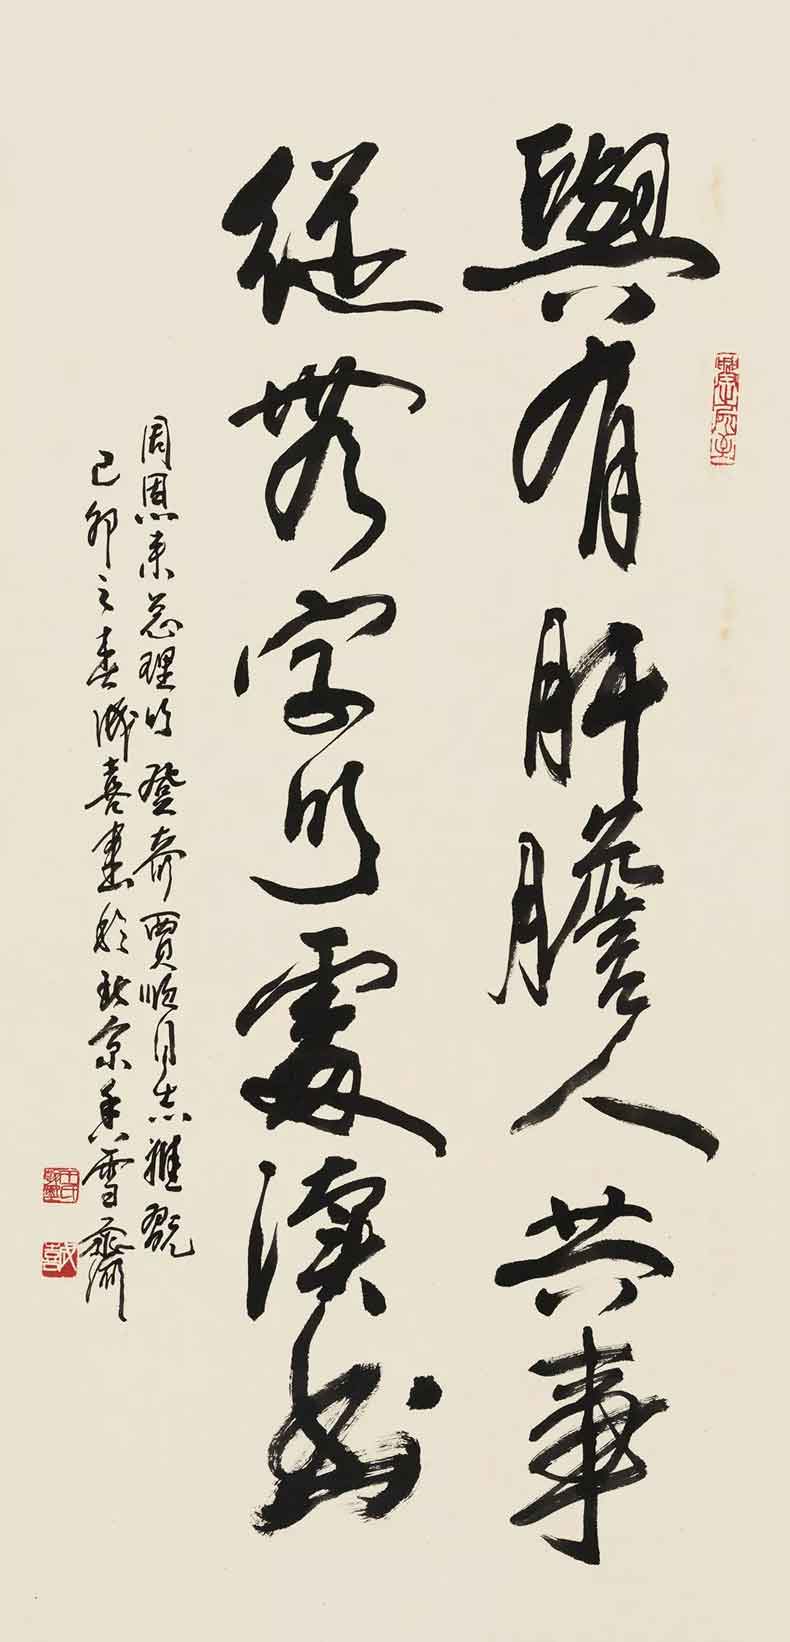 與有肝膽人共事
從無字句處讀書
周恩来总理句 登奇賈順同志雅觀
己卯之春成喜書於北京香雪齋
成喜